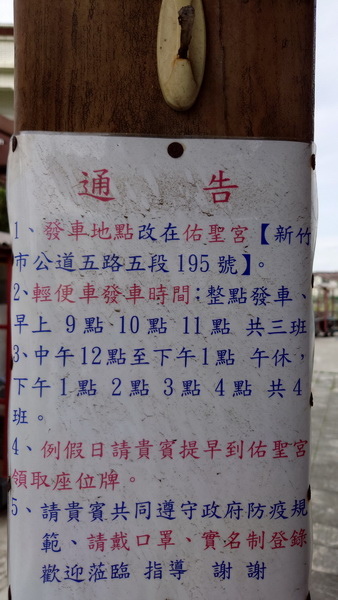 通 告
1、發車地點改在佑聖宮【新竹
市公道五路五段 195 號】。
2、輕便車發車時間:整點發車、
早上 9點 10點 11點 共三班
3、中午12點至下午1點 午休,
下午1點 2點 3點 4點 共4
班。
4、例假日請貴賓提早到佑聖宮
領取座位牌。
5、請貴賓共同遵守政府防疫規
範、請戴口罩、實名制登錄
歡迎蒞臨 指導 謝 謝